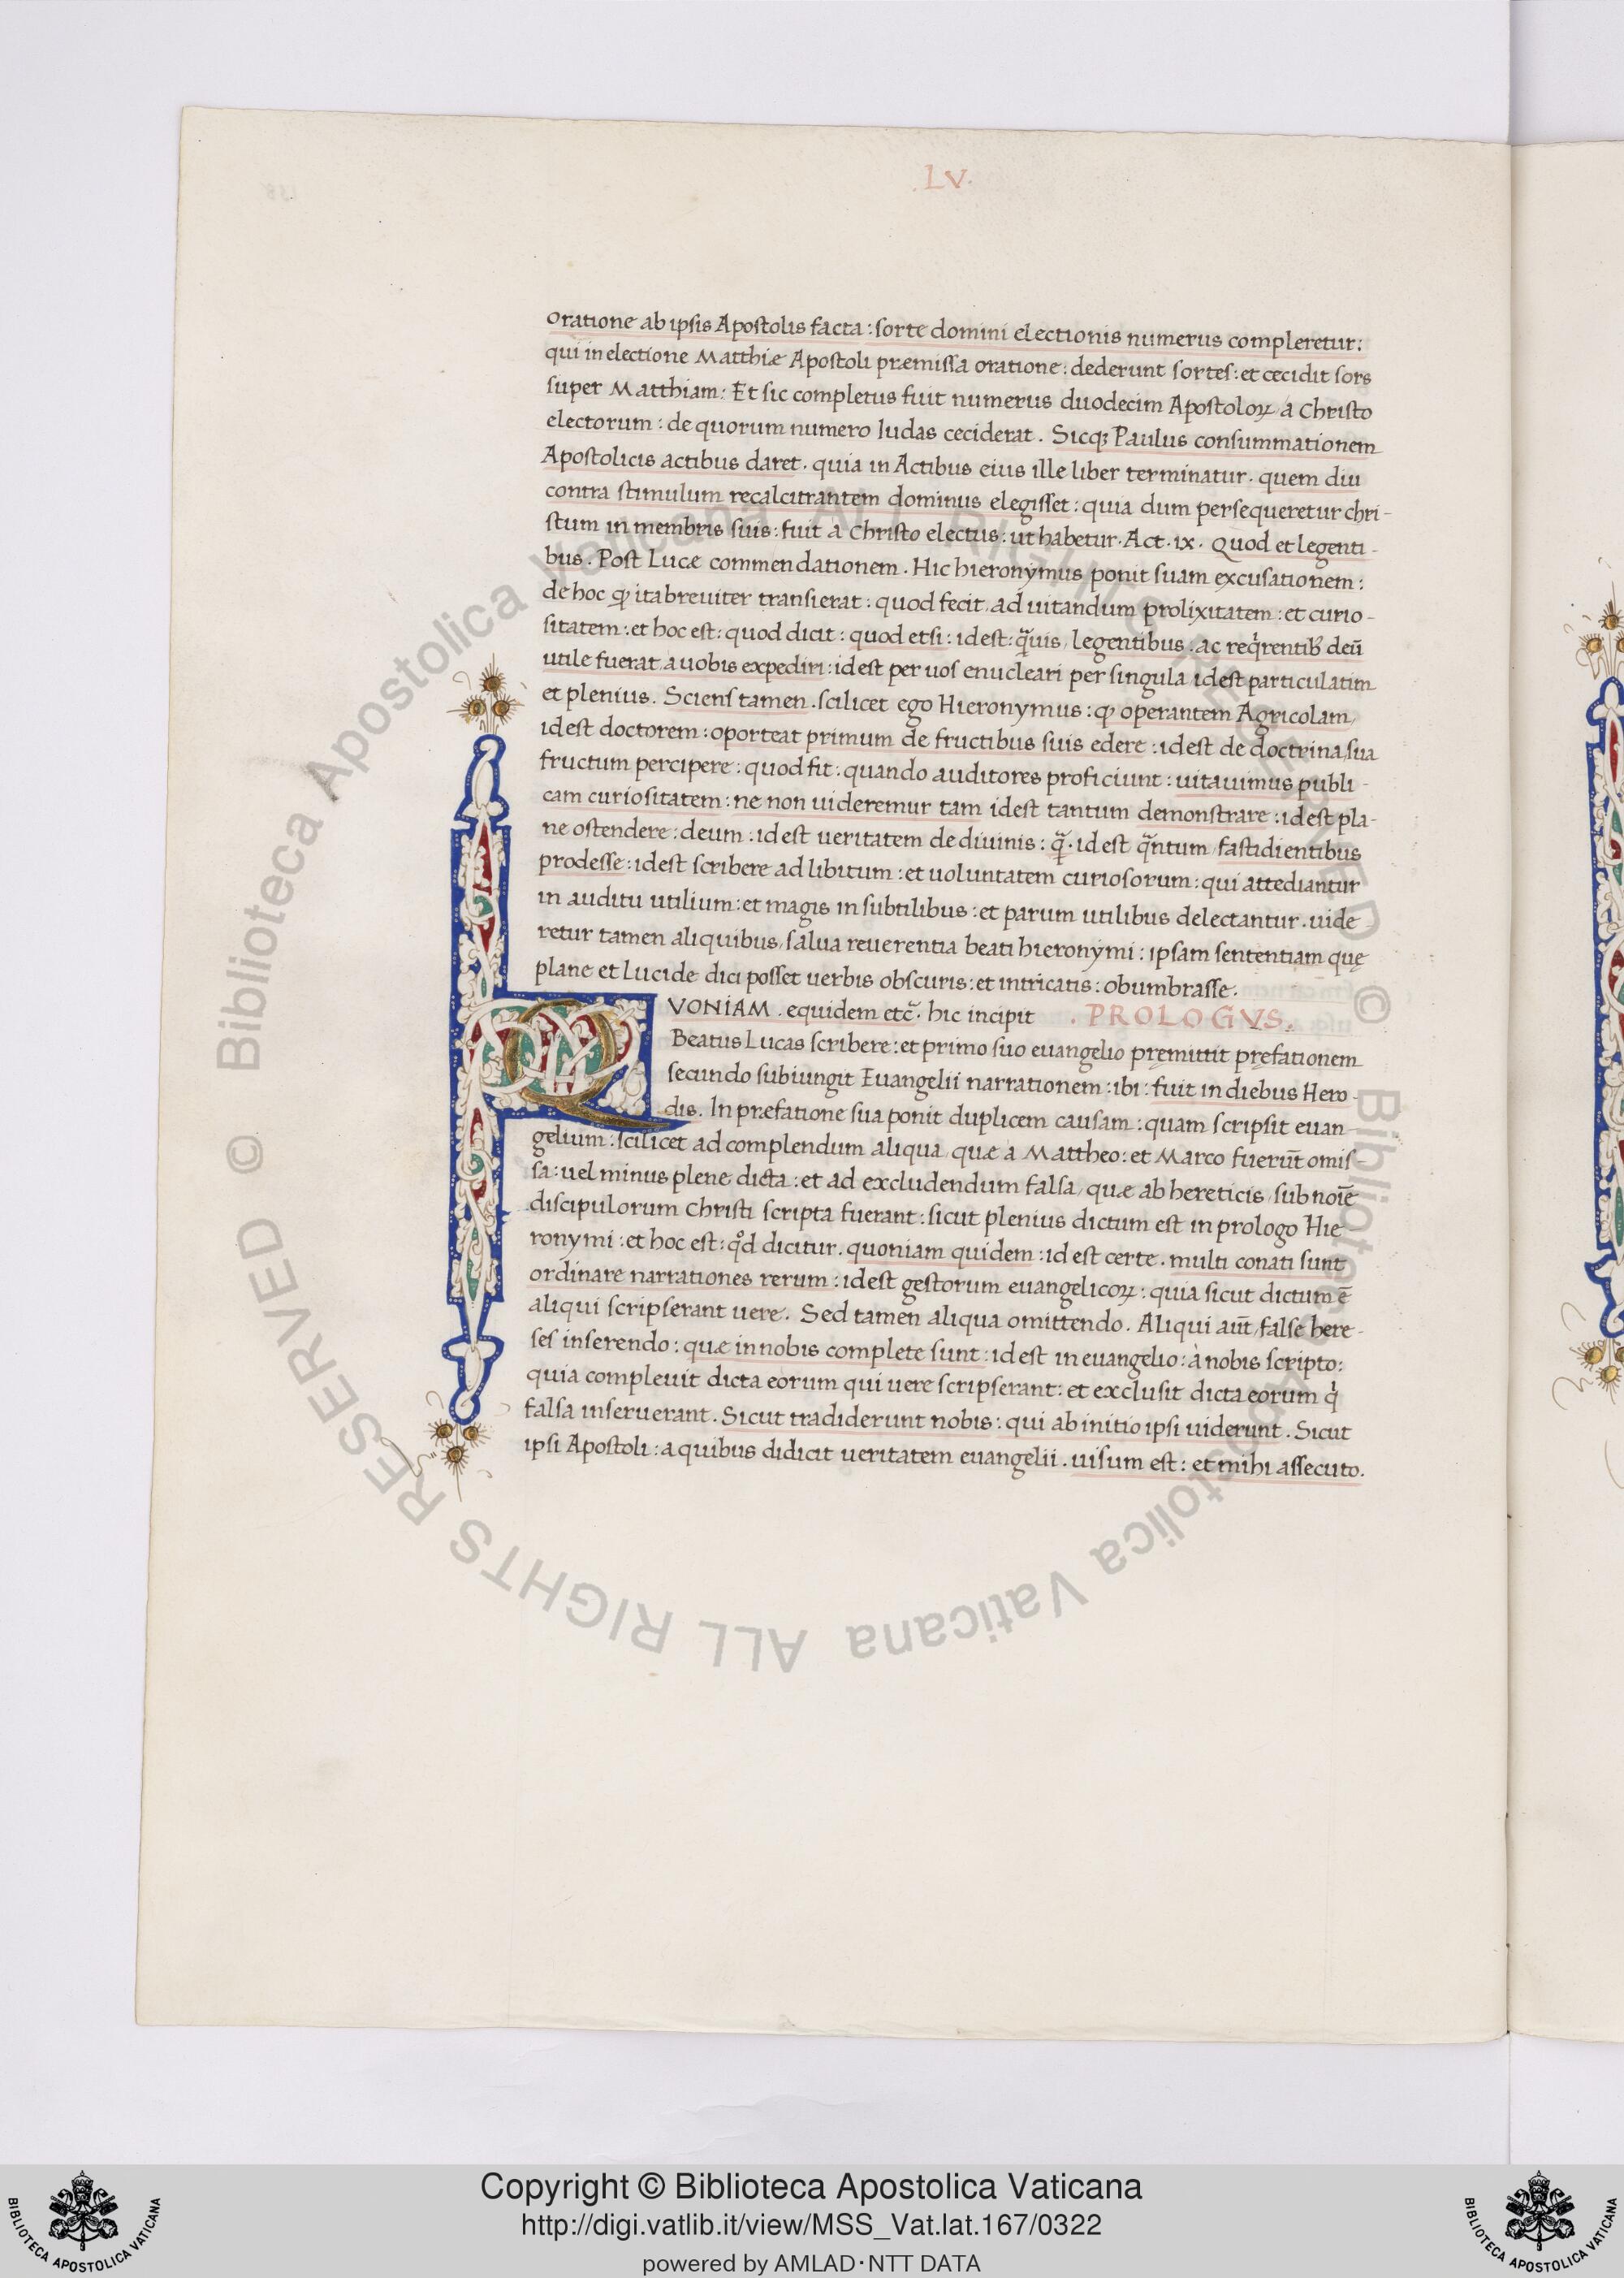 .LV.
oratione ab ipsis Apostolis facta : sorte domini electionis numerus compleretur :
qui in electione Matthiæ Apostoli præmissa oratione : dederunt sortes : et cecidit sors
super Matthiam : Et sic completus fuit numerus duodecim Apostoloꝝ a Christo
electorum : de quorum numero Iudas ceciderat . Sicqꝫ Paulus consummationem
Apostolicis actibus daret . quia in Actibus eius ille liber terminatur . quem diu
contra stimulum recalcitrantem dominus elegisset : quia dum persequeretur chri-
stum in membris suis : fuit a Christo electus : ut habetur . Act . ix . Quod et legenti-
bus . Post Lucæ commendationem . Hic hieronymus ponit suam excusationem :
de hoc ꝙ ita breuiter transierat : quod fecit ad uitandum prolixitatem : et curio-
sitatem : et hoc est : quod dicit : quod etsi : idest : q̃uis legentibus . ac reqͥrentibꝰ deū
utile fuerat a uobis expediri : idest per uos enucleari per singula idest particulatim
et plenius . Sciens tamen . scilicet ego Hieronymus : ꝙ operantem Agricolam
idest doctorem : oporteat primum de fructibus suis edere : idest de doctrina sua
fructum percipere : quod fit : quando auditores proficiunt : uitauimus publi-
cam curiositatem : ne non uideremur tam idest tantum demonstrare : idest pla-
ne ostendere : deum : idest ueritatem de diuinis : q̃ . idest q̃ntum fastidientibus
prodesse : idest scribere ad libitum : et uoluntatem curiosorum : qui attediantur
in auditu utilium : et magis in subtilibus : et parum utilibus delectantur . uide
retur tamen aliquibus salua reuerentia beati hieronymi : ipsam sententiam quę
plane et Lucide dici posset uerbis obscuris : et intricatis : obumbrasse .
QVONIAM . equidem etc̃ . hic incipit . PROLOGVS .
Beatus Lucas scribere : et primo suo euangelio pręmittit pręfationem
secundo subiungit Euangelii narrationem : ibi : fuit in diebus Hero-
dis . In præfatione sua ponit duplicem causam : quam scripsit euan-
gelium : scilicet ad complendum aliqua quæ a Mattheo : et Marco fuerūt omis
sa : uel minus plene dicta : et ad excludendum falsa quæ ab hereticis sub noīe
discipulorum Christi scripta fuerant : sicut plenius dictum est in prologo Hie-
ronymi : et hoc est : qͦd dicitur . quoniam quidem : idest certe . multi conati sunt
ordinare narrationes rerum : idest gestorum euangelicoꝝ : quia sicut dictum ē
aliqui scripserant uere . Sed tamen aliqua omittendo . Aliqui aūt false here-
ses inserendo : quæ in nobis complete sunt : idest in euangelio : à nobis scripto :
quia compleuit dicta eorum qui uere scripserant : et exclusit dicta eorum qͥ
falsa inseruerant . Sicut tradiderunt nobis : qui ab initio ipsi uiderunt . Sicut
ipsi Apostoli : a quibus didicit ueritatem euangelii . uisum est : et mihi assecuto .
© Biblioteca Apostolica Vaticana ALL RIGHTS RESERVED
© Biblioteca Apostolica Vaticana ALL RIGHTS RESERVED
Copyright © Biblioteca Apostolica Vaticana
http://digi.vatlib.it/view/MSS_Vat.lat.167/0322
powered by AMLAD·NTT DATA
BIBLIOTECA APOSTOLICA VATICANA
BIBLIOTECA APOSTOLICA VATICANA